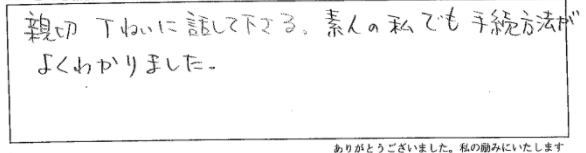 親切 丁ねいに話して下さる。素人の私でも手続方法が
よくわかりました。
ありがとうございました。私の励みにいたします